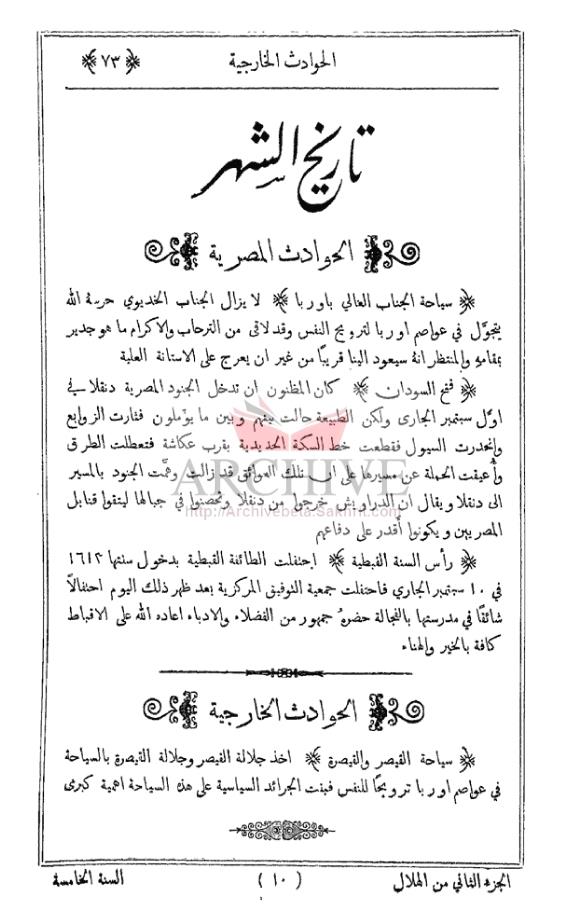 الحوادث الخارجية ﴿٧٣﴾
تاريخ الشهر
الحوادث المصرية
﴿ سياحة الجناب العالي باوربا ﴾ لا يزال الجناب الخديوي حرسهُ الله
يتجوَّل في عواصم اوربا لترويح النفس وقد لاقى من الترحاب والاكرام ما هو جدير
بمقامهِ والمنتظر انهُ سيعود الينا قريبًا من غير ان يعرج على الاستانة العلية
﴿ فتح السودان ﴾ كان المظنون ان تدخل الجنود المصرية دنقلا في
اوَّل سبتمبر الجاري ولكن الطبيعة حالت بينهم وبين ما يوءملون فثارت الزوابع
وانحدرت السيول فقطعت خط السكة الحديدية بقرب عكاشة فتعطلت الطرق
وأُعيقت الحملة عن مسيرها على ان تلك العوائق قد زالت وهمَّت الجنود بالمسير
الى دنقلا ويقال ان الدراويش خرجوا من دنقلا وتحصنوا في جبالها ليتقوا قنابل
المصريين ويكونوا أقدر على دفاعهم
﴿ رأس السنة القبطية ﴾ احتفلت الطائفة القبطية بدخول سنتها ١٦١٣
في ١٠ سبتمبر الجاري فاحتفلت جمعية التوفيق المركزية بعد ظهر ذلك اليوم احتفالاً
شائقًا في مدرستها بالفجالة حضرهُ جمهور من الفضلاء والادباء اعاده الله على الاقباط
كافة بالخير والهناء
الحوادث الخارجية
﴿ سياحة القيصر والقيصرة ﴾ اخذ جلالة القيصر وجلالة القيصرة بالسياحة
في عواصم اوربا ترويحًا للنفس فبنت الجرائد السياسية على هذه السياحة اهمية كبرى
الجزء الثاني من الهلال (١٠) السنة الخامسة
ARCHIVE
http://Archivebeta.Sakhrit.com